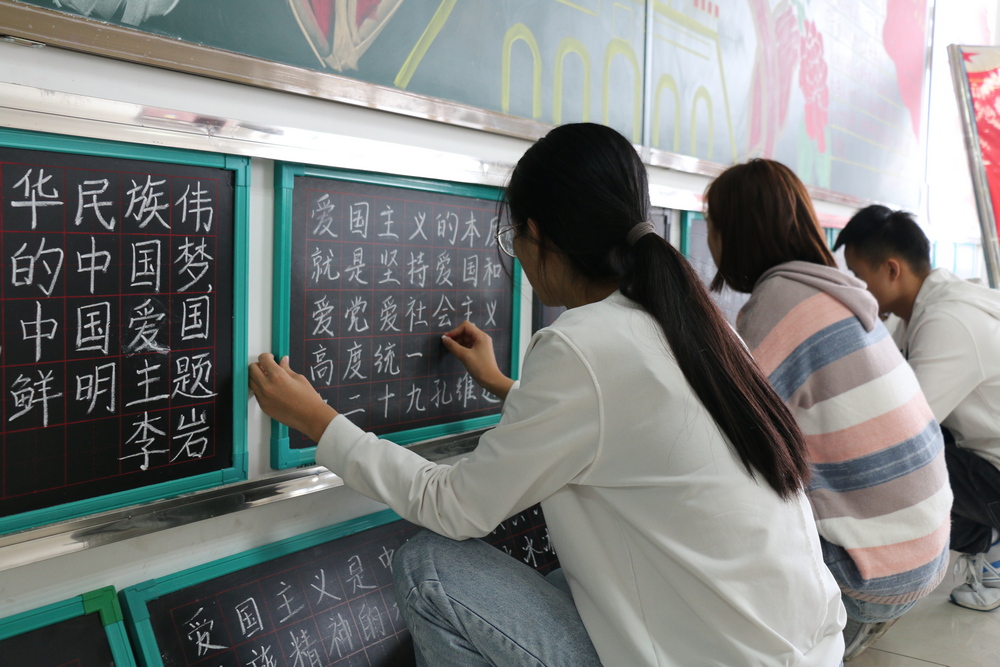 华民族伟
的中国梦,
中国爱国
鲜明主题
李岩
爱国主义的本质
就是坚持爱国和
爱党爱社会主义
高度统一
二十九孔维
爱国主义是中
族精神的